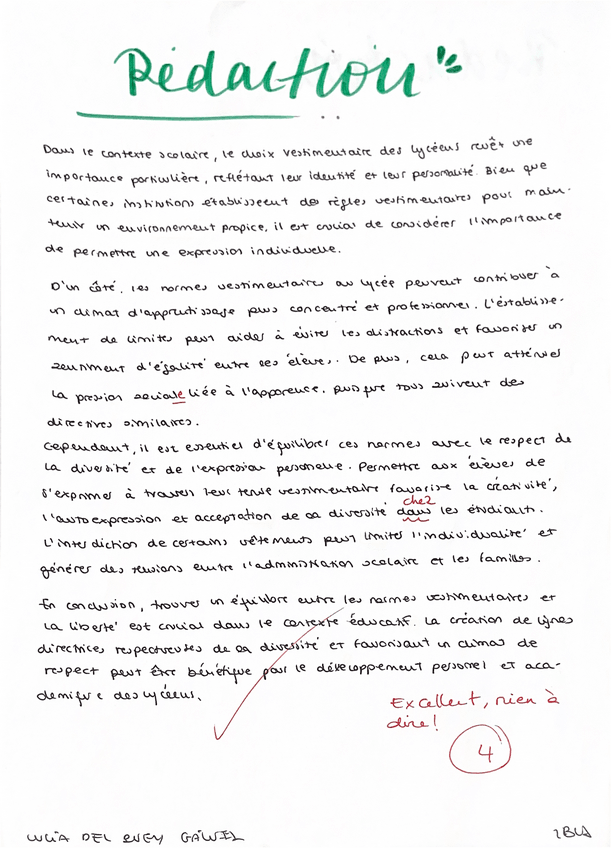 Rédaction
Dans le contexte scolaire, le choix vestimentaire des lycéens revêt une
importance particulière, reflétant leur identité et leur personalité. Bien que
certaines institutions établissent des règles vestimentaires pour main-
tenir un environnement propice, il est crucial de considérer l'importance
de permettre une expression individuelle.
D'un côté, les normes vestimentaires au lycée peuvent contribuer à
un climat d'apprentissage plus concentré et professionnel. L'établisse-
ment de limites peut aider à éviter les distractions et favoriser un
sentiment d'égalité entre les élèves. De plus, cela peut atténuer
la pression sociale liée à l'apparence, puisque tous suivent des
directives similaires.
Cependant, il est essentiel d'équilibrer ces normes avec le respect de
la diversité et de l'expression personelle. Permettre aux élèves de
s'exprimer à travers leur tenue vestimentaire favorise la créativité,
chez
l'autoexpression et acceptation de sa diversité dans les étudiants.
L'interdiction de certains vêtements peut limiter l'individualité et
générer des tensions entre l'administration scolaire et les familles.
En conclusion, trouver un équilibre entre les normes vestimentaires et
la liberté est crucial dans le contexte éducatif. La création de lignes
directrices respectueuses de sa diversité et favorisant un climat de
respect peut être bénéfique pour le développement personnel et aca-
demique des lycéens.
Excellent, rien à
dire!
4
DEL